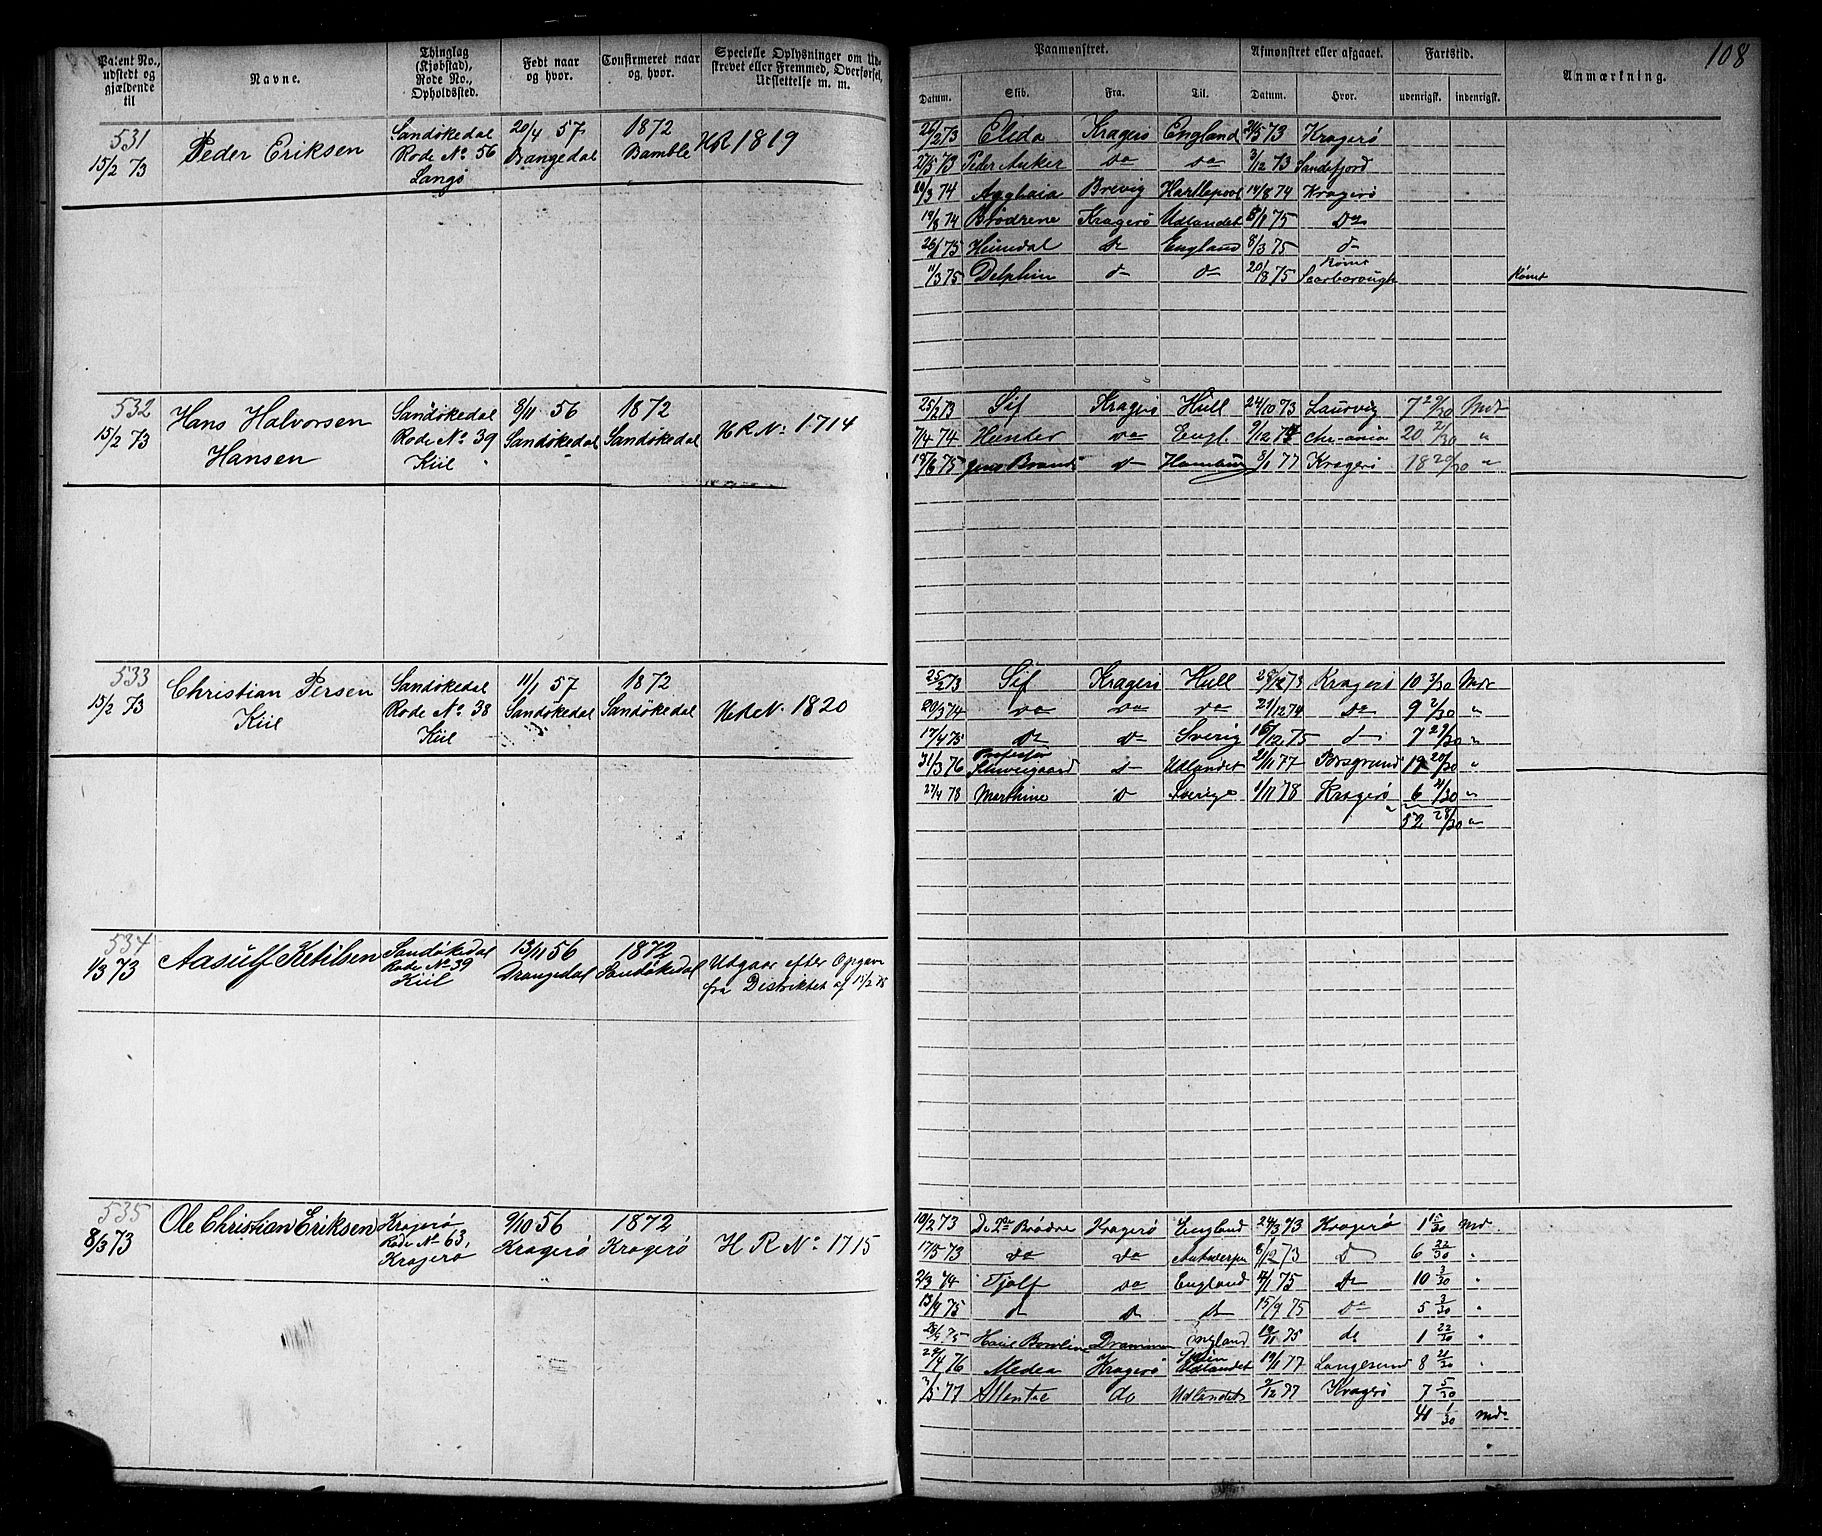 108
Patent No., udstedt og gjældende til
Navne.
Thinglag (Kjøbstad), Rode No., Opholdssted.
Født naar og hvor.
Confirmeret naar og hvor.
Specielle Oplysninger om Udskrevet eller Fremmed, Overførsel, Udslettelse m. m.
Paamønstret.
Afmønstret eller afgaaet.
Fartstid.
Anmærkning.
Datum. Skib. Fra. Til. Datum. Hvor. udenrigsk. indenrigsk.
531
15/2 73
Peder Eriksen
Sandøkedal
Rode No 56
Langø
20/4 57
Drangedal
1872
Bamble
HR 1819
26/2 73 Elida Kragerø England 21/5 73 Kragerø
27/5 73 Peder Anker do do 3/12 73 Sandefjord
20/3 74 Aglaia Brevig Hartlepool 14/8 74 Kragerø
19/8 74 Brødrene Kragerø Udlandet 8/1 75 Do
26/1 75 Heimdal Do England 8/3 75 do
11/3 75 Delphin do do 20/8 75 Rømt Scarborough Rømt
532
15/2 73
Hans Halvorsen
Hansen
Sandøkedal
Rode No 39
Kiil
8/11 56
Sandøkedal
1872
Sandøkedal
HR No 1714
25/2 73 Sif Kragerø Hull 24/10 73 Laurvig 7 29/30 Mdr
7/4 74 Hunder do Engl. 9/12 74 Chr.ania 20 2/30 "
15/6 75 Jens Brandi do Hamburg 5/1 77 Kragerø 18 20/30 "
533
15/2 73
Christian Persen
Kiil
Sandøkedal
Rode No 38
Kiil
11/1 57
Sandøkedal
1872
Sandøkedal
HR No 1820
25/2 73 Sif Kragerø Hull 28/12 73 Kragerø 10 3/30 Mdr
20/3 74 do do do 21/12 74 Do 9 2/30 "
17/4 75 Do Do Sverig 16/12 75 do 7 29/30 "
31/3 76 Professor Schweigaard do Udlandet 21/11 77 Porsgrund 19 20/30 "
27/4 78 Marthine do Sverige 1/11 78 Kragerø 6 4/30 "
52 28/30 "
534
1/3 73
Aasulf Ketilsen
Sandøkedal
Rode No 39
Kiil
13/11 56
Drangedal
1872
Sandøkedal
Udgaar efter Opgave
fra Distriktet af 15/2 78
535
8/3 73
Ole Christian Eriksen
Kragerø
Rode No 63,
Kragerø
9/10 56
Kragerø
1872
Kragerø
H R No 1715
10/2 73 De 2de Brødre Kragerø England 24/3 73 Kragerø 1 15/30 Md.
17/5 73 do do Antwerpen 8/12 73 D 6 22/30 "
2/3 74 Tjalf do England 4/1 75 Do 10 3/30 "
13/4 75 d D D 15/9 75 Do 5 3/30 "
28/9 75 Haul Bowline Drammen England 19/11 75 do 1 22/30 "
29/4 76 Medea Kragerø Udlandet 19/1 77 Langesund 8 21/30 "
3/5 77 Attentat do Udlandet 7/12 77 Kragerø 7 5/30
41 1/30 Md.